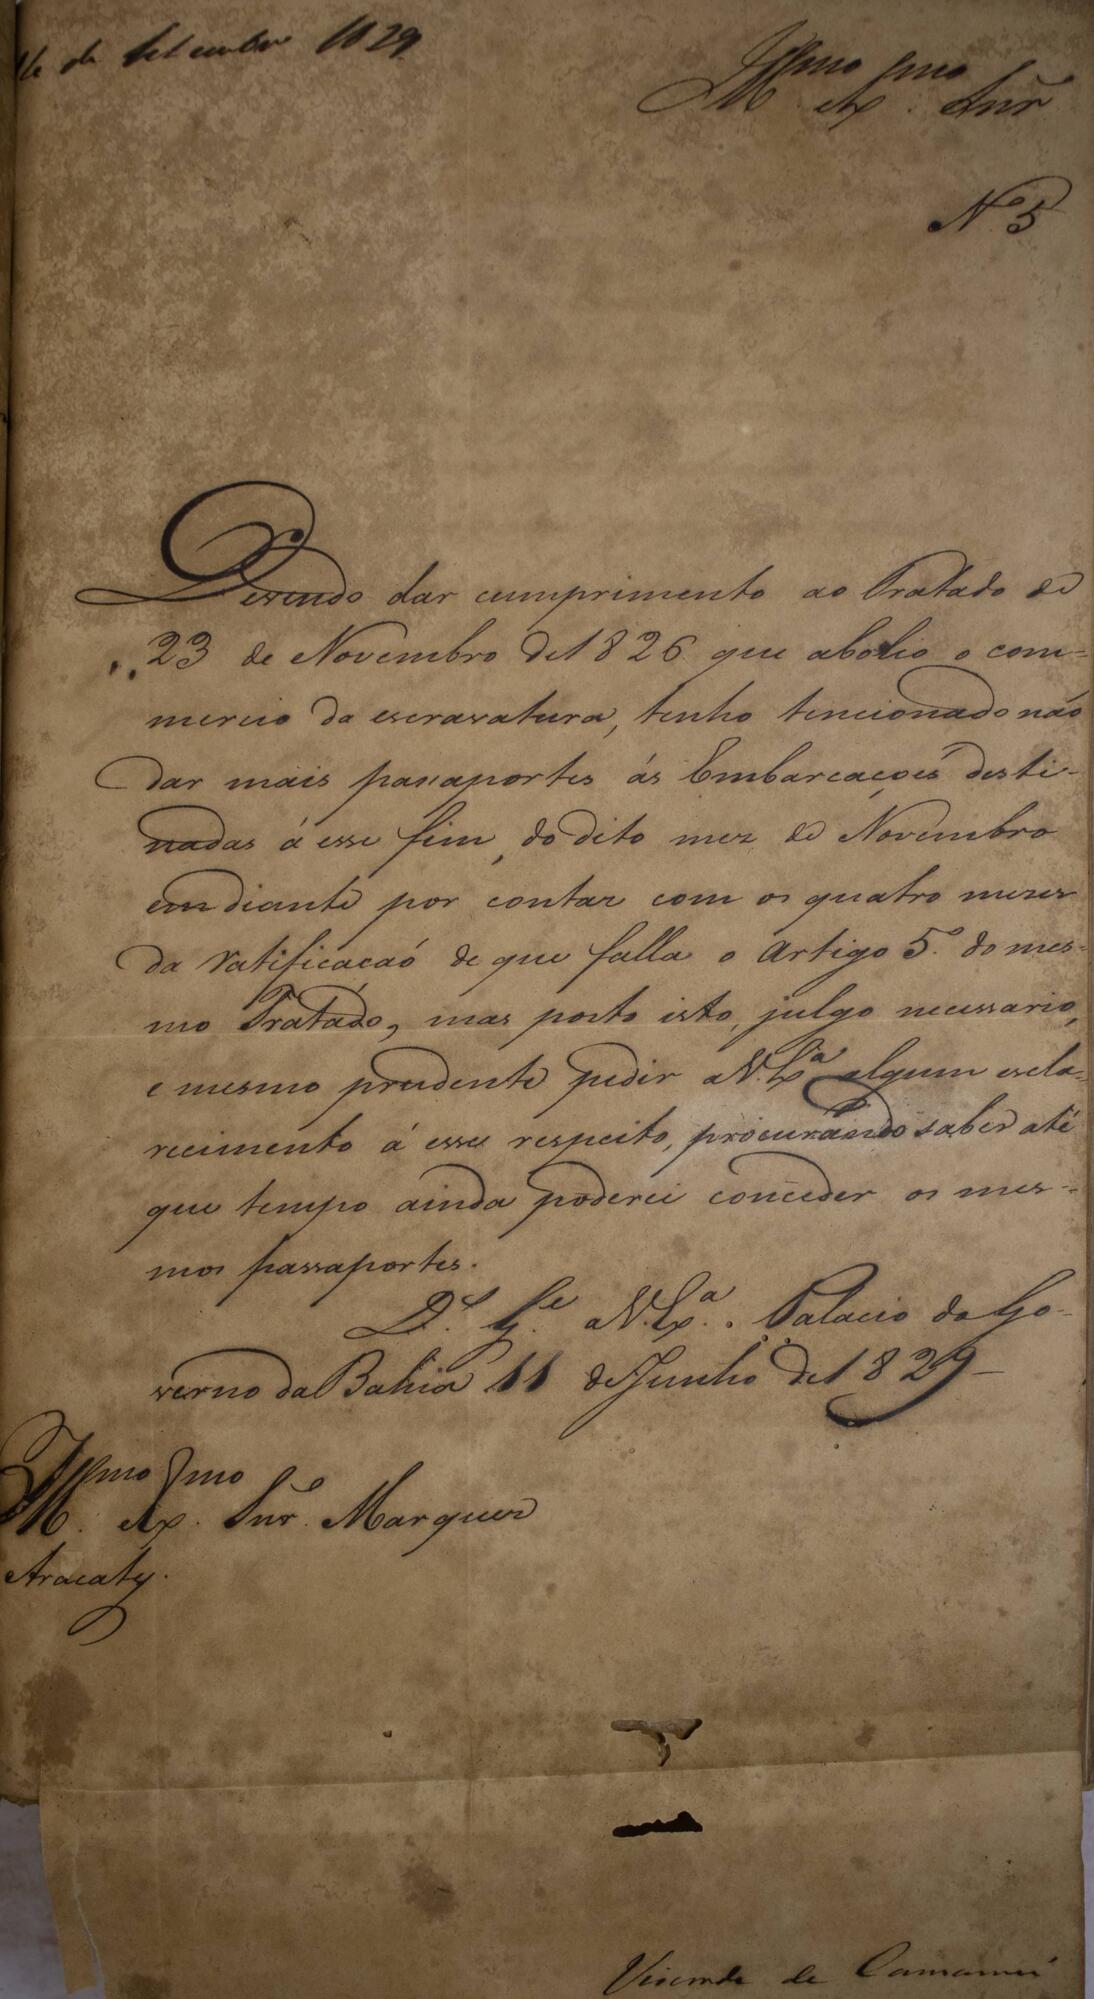 16 de Setembro 1829
Illmo Exmo Snr
N.º 5
Devendo dar cumprimento ao Tratado de
23 de Novembro de 1826 que abolio o com-
mercio da escravatura, tenho tencionado não
dar mais passaportes ás Embarcações desti-
nadas á esse fim, do dito mez de Novembro
em diante por contar com os quatro mezes
da ratificacaó de que falla o Artigo 5.º do mes-
mo Tratado, mas posto isto, julgo necessario,
e mesmo prudente pedir a V. Exa. algum escla-
recimento á esse respeito, procurando saber até
que tempo ainda poderei conceder os mes-
mos passaportes.
Ds. Ge. a V. Exa. Palacio do Go-
verno da Bahia 11 de Junho de 1829
Illmo Exmo Snr. Marquez
Aracaty.
Visconde de Camamú